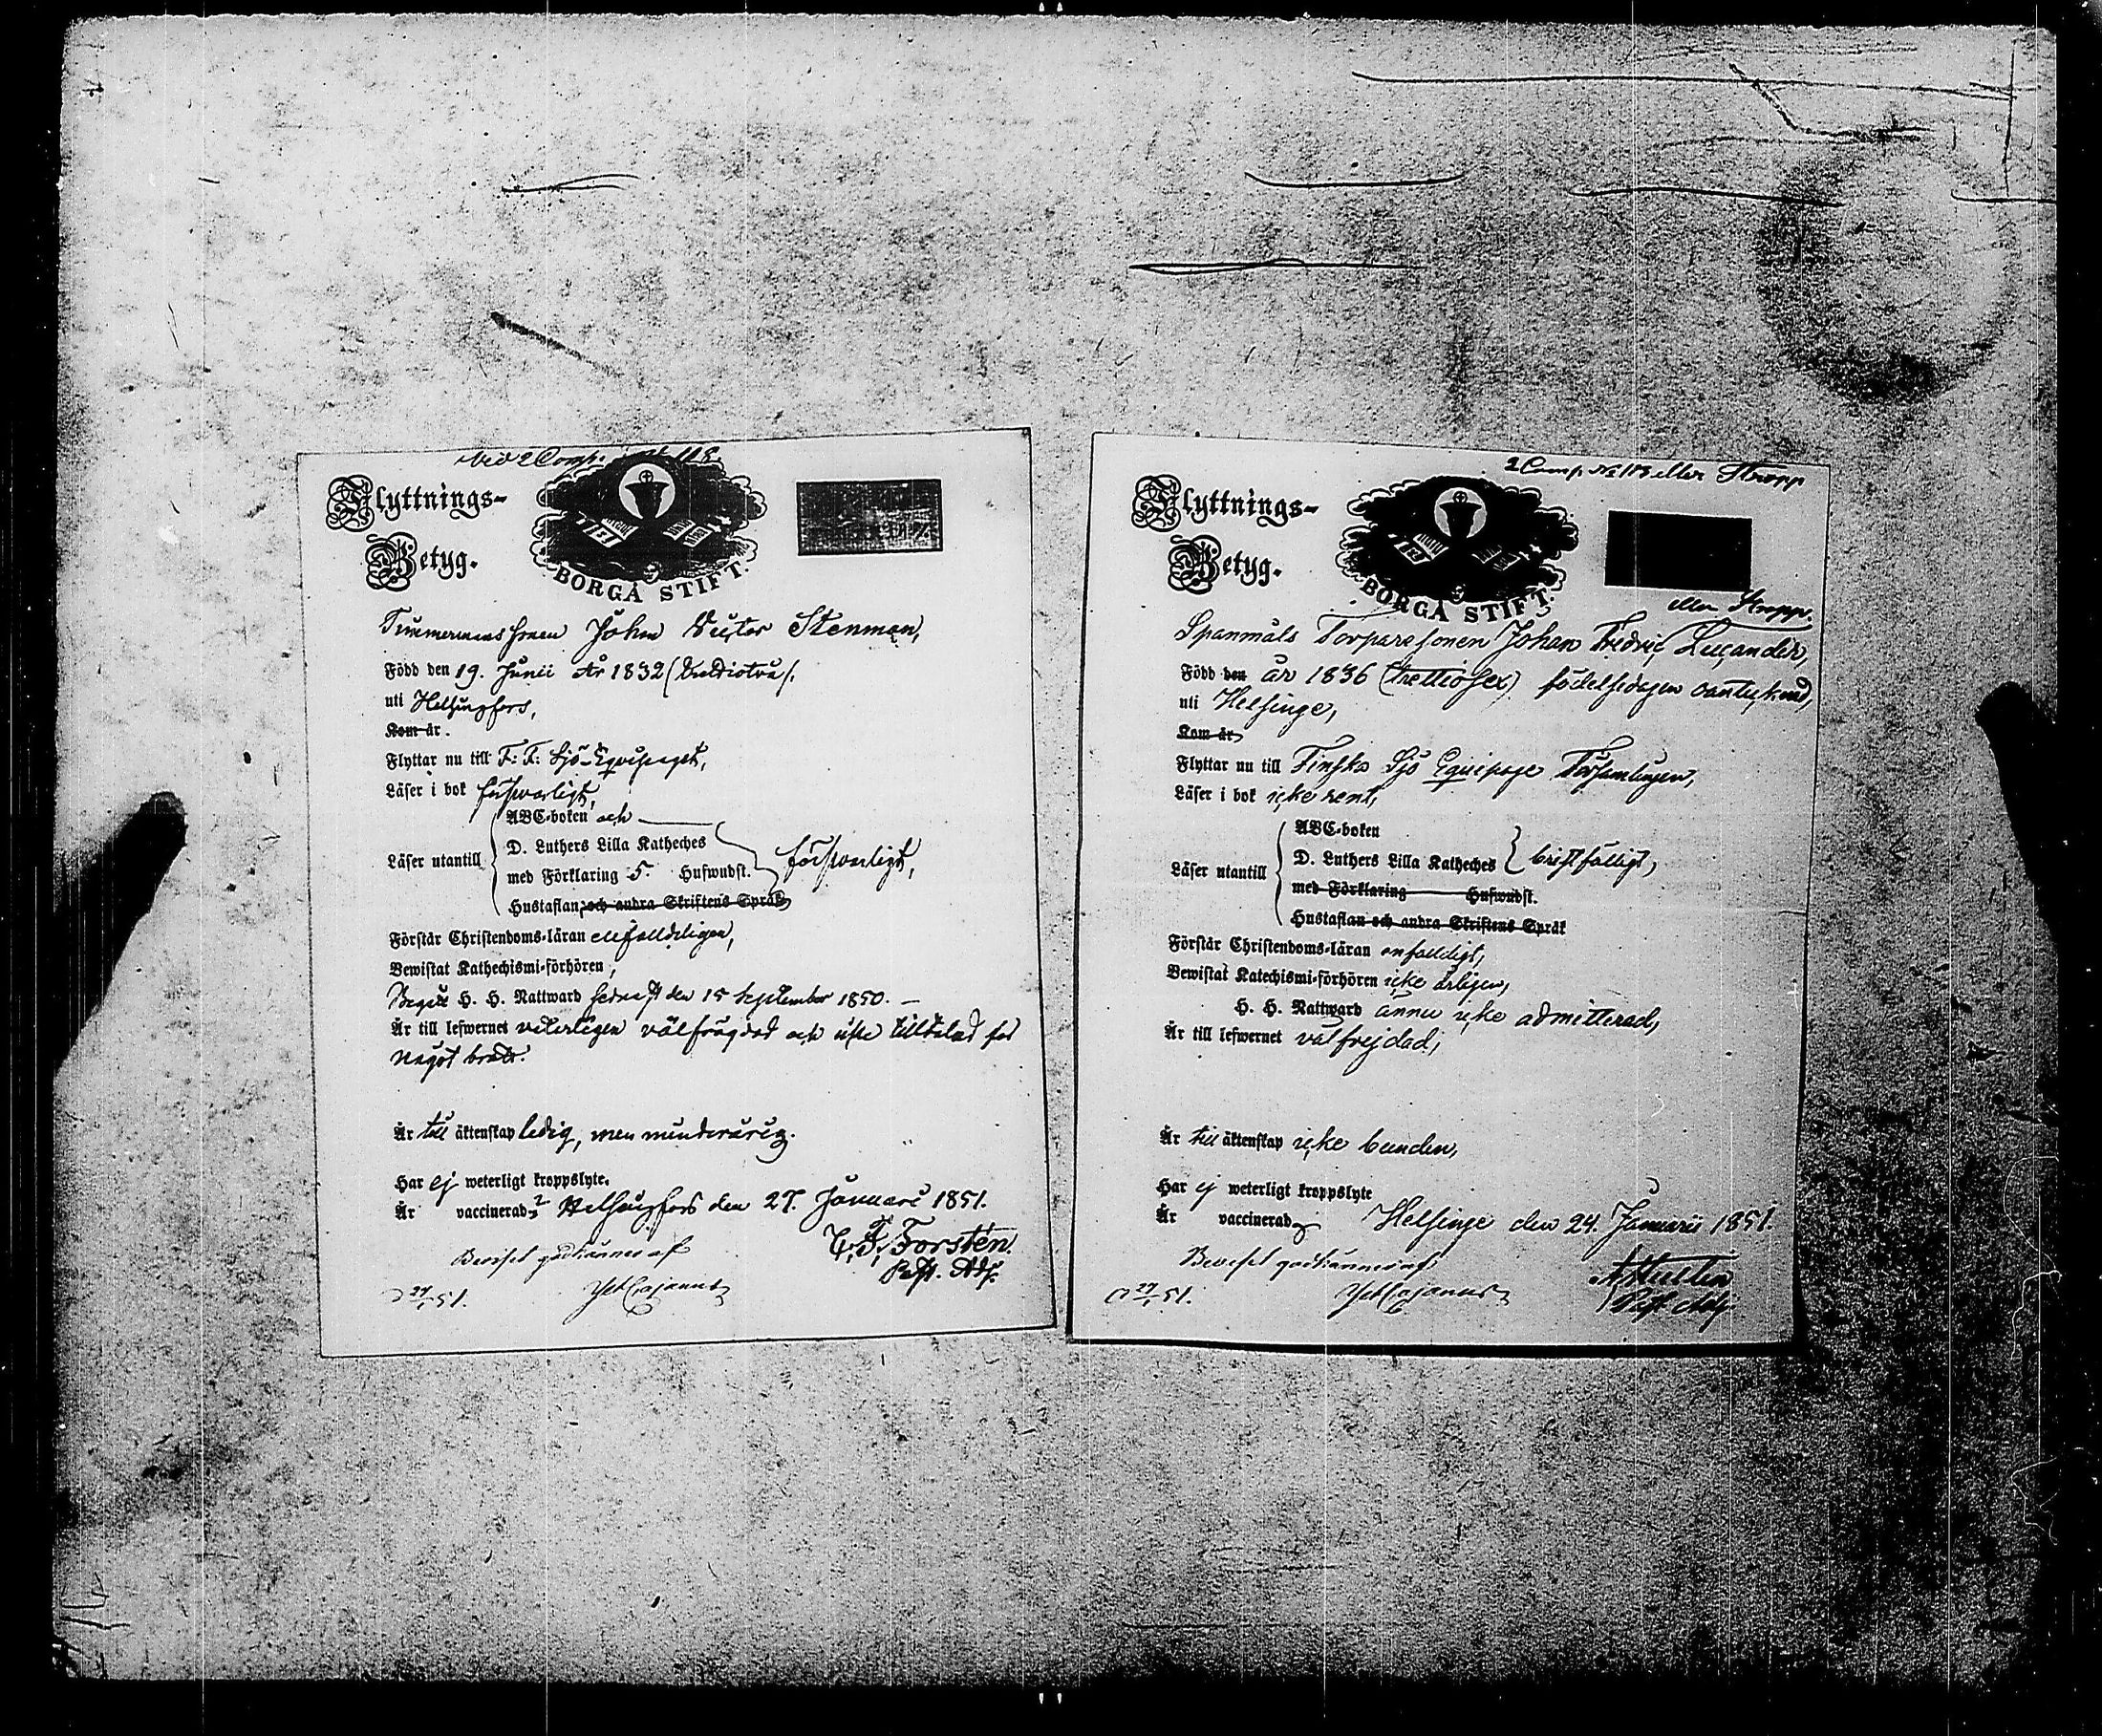 vid 2 Comp. 118.
Flyttnings-
Betyg.
BORGÅ STIFT.
Timmermans Sonen Johan Victor Stenman,
Född den 19. Junii År 1832 (Trettiotvå).
uti Helsingfors,
Kom år.
Flyttar nu till F: F: Sjö-Eqvipaget,
Läser i bok försvarligt,
ABC-boken och
D. Luthers Lilla Katheches
Läser utantill
med Förklaring 5. Hufwudst.
försvarligt,
Hustaflan, och andra Skriftens Språk
Förstår Christendoms-läran enfaldeligen,
Bewistat Kathechismi-förhören,
Begått H. H. Nattward sednast den 15 September 1850. —
Är till lefwernet veterligen välfrägdad och icke tilltalad för
något brott.
Är till äktenskap ledig, men minderårig.
Har ej weterligt kroppslyte.
Är vaccinerad; Helsingfors den 27. Januari 1851.
C. F. Forstén.
Past. Adj.
Beviset godkännes af
27/1 51. Cajanus
2 Comp. No 113 eller Stropp
Flyttnings-
Betyg.
BORGÅ STIFT.
eller Stropp.
Spanmåls Torparesonen Johan Fredric Lucander,
Född den år 1836 (trettiosex) födelsedagen oanteknad,
uti Helsinge,
Kom år
Flyttar nu till Finska Sjö Equipage Församlingen,
Läser i bok icke rent,
ABC-boken
D. Luthers Lilla Katheches
bristfälligt,
Läser utantill
med Förklaring Hufwudst.
Hustaflan och andra Skriftens Språk
Förstår Christendoms-läran enfaldigt,
Bewistat Katechismi-förhören icke årligen,
H. H. Nattward ännu icke admitterad,
Är till lefwernet välfrejdad;
Är till äktenskap icke bunden,
Har ej weterligt kroppslyte
Är vaccinerad, Helsinge den 24. Januarii 1851.
Beviset godkännes af
Past. Adj.
27/1 51. Cajanus